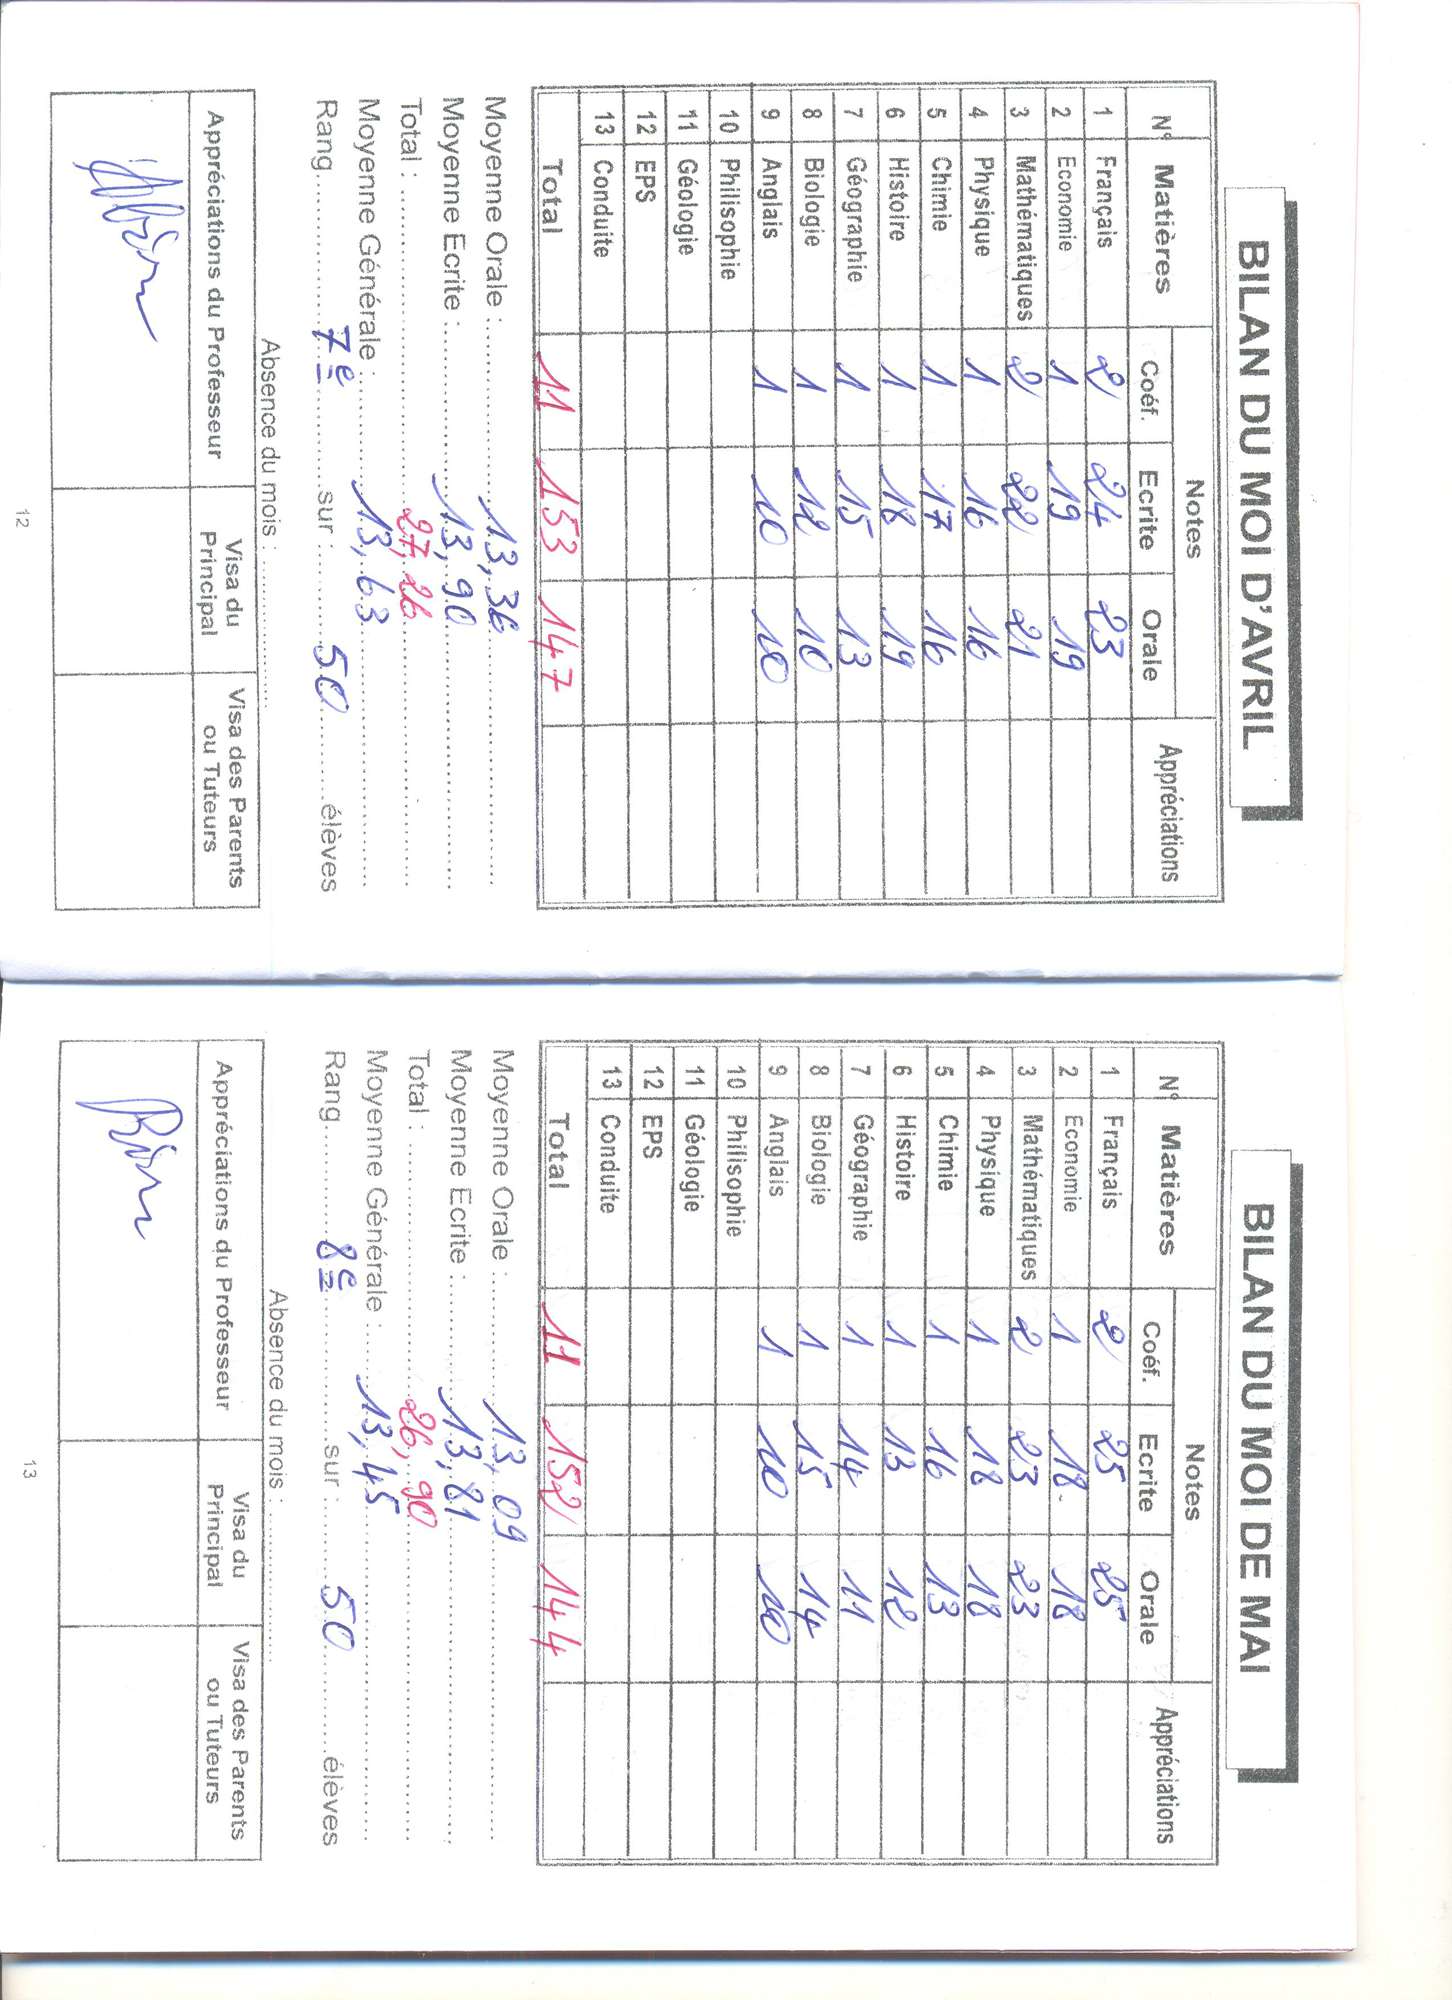 BILAN DU MOI D'AVRIL
N° Matières Notes Appréciations
Coéf. Ecrite Orale
1 Français 2 24 23
2 Economie 1 19 19
3 Mathématiques 2 22 21
4 Physique 1 16 16
5 Chimie 1 17 16
6 Histoire 1 18 19
7 Géographie 1 15 13
8 Biologie 1 12 10
9 Anglais 1 10 10
10 Philisophie
11 Géologie
12 EPS
13 Conduite
Total 11 153 147
Moyenne Orale : 13,36
Moyenne Ecrite : 13,90
Total : 27,26
Moyenne Générale : 13,63
Rang 7e sur : 50 élèves
Absence du mois :
Appréciations du Professeur Visa du Principal Visa des Parents ou Tuteurs
12
BILAN DU MOI DE MAI
N° Matières Notes Appréciations
Coéf. Ecrite Orale
1 Français 2 25 25
2 Economie 1 18 18
3 Mathématiques 2 23 23
4 Physique 1 18 18
5 Chimie 1 16 13
6 Histoire 1 13 12
7 Géographie 1 14 11
8 Biologie 1 15 14
9 Anglais 1 10 10
10 Philisophie
11 Géologie
12 EPS
13 Conduite
Total 11 152 144
Moyenne Orale : 13,09
Moyenne Ecrite : 13,81
Total : 26,90
Moyenne Générale : 13,45
Rang 8e sur : 50 élèves
Absence du mois :
Appréciations du Professeur Visa du Principal Visa des Parents ou Tuteurs
13